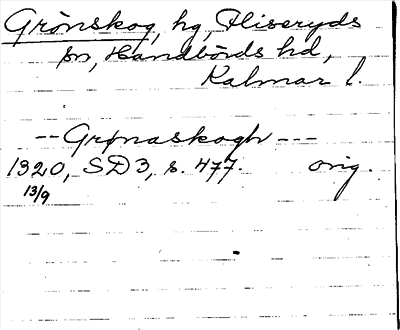 Grönskog, hg, Fliseryds
sn, Handbörds hd,
Kalmar l.
-- Grønaskogh ---
1320, SD 3, s. 477. orig.
13/9